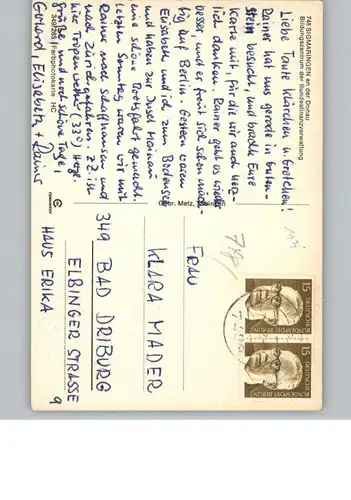 748 SIGMARINGEN an der Donau
Bildungszentrum der Bundesfinanzverwaltung
Liebe Tante Klärchen u. Gretchen!
Rainer hat uns gerade in Guten-
stein besucht, und brachte Eure
Karte mit, für die wir auch herz-
lich danken. Rainer geht es wieder
besser, und er freut sich schon
auf Berlin. Gestern waren
Elisabeth und ich zum Bodensee
und haben zur Insel Mainau
eine schöne Bootsfahrt gemacht.
letzten Sonntag waren wir mit
Rainer nach Schaffhausen und
nach Zürich gefahren. Zz. ist
hier Tropenwetter (33°) Herzl.
Grüße, und noch schöne Tage,
Gerhard, Elisabeth + Rainer
349/265 Farbphotokarte HC
Gebr. Metz,
FRAU
KLARA MADER
349 BAD DRIBURG
ELBINGER STRASSE 9
HAUS ERIKA
15
DEUTSCHE
BUNDESPOST BERLIN
15
DEUTSCHE
BUNDESPOST BERLIN